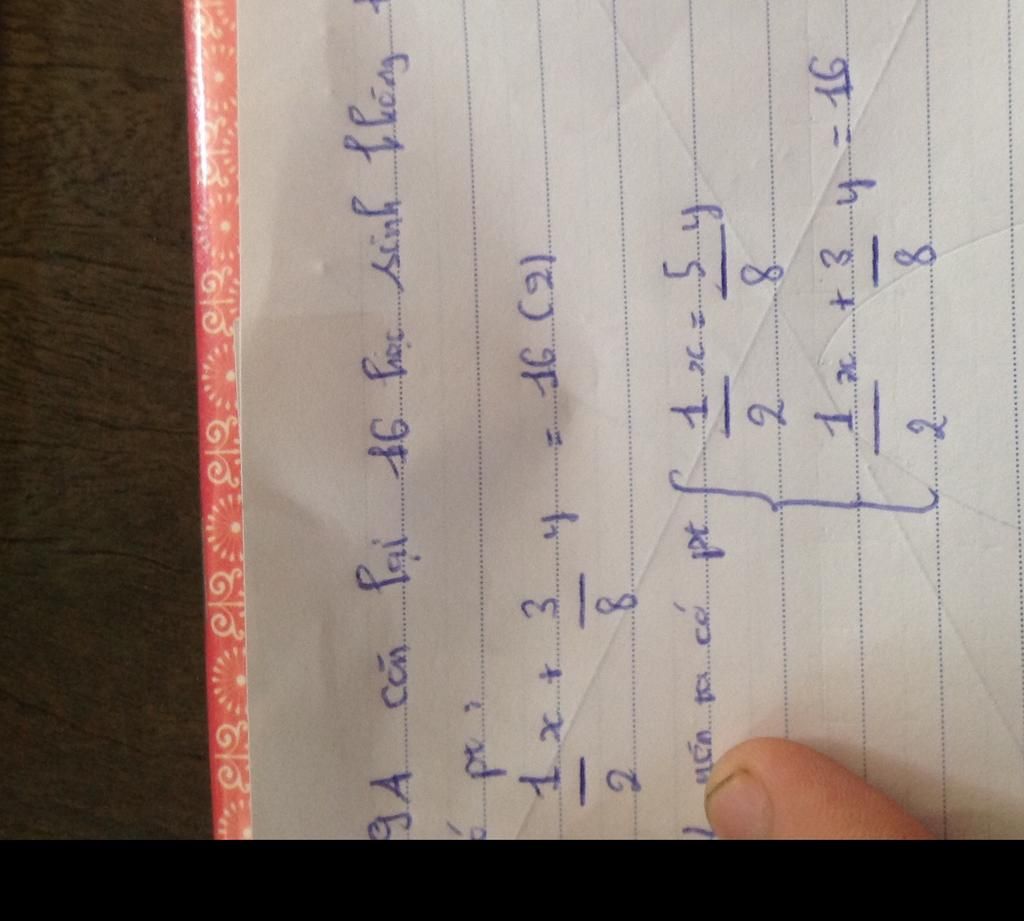 9A còn lại 16 học sinh không
pt :
1/2 x + 3/8 y = 16 (2)
nên ta có pt { 1/2 x = 5/8 y
1/2 x + 3/8 y = 16